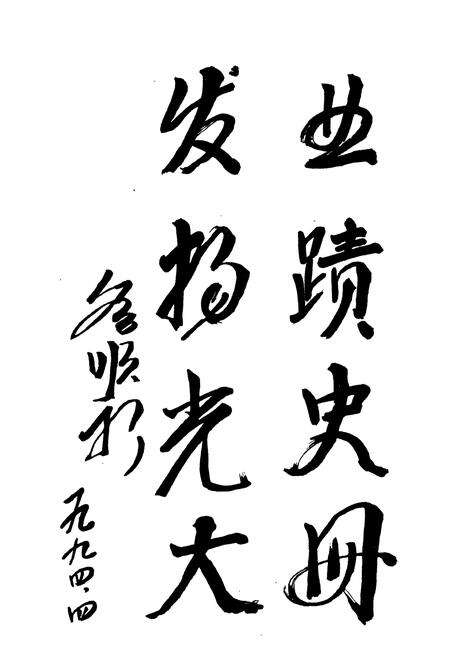 业蹟史册
发扬光大
一九九四.四